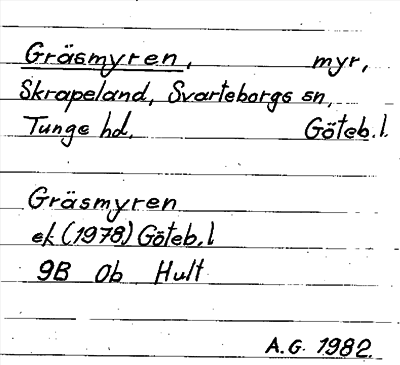 Gräsmyren, myr,
Skrapeland, Svarteborgs sn,
Tunge hd, Göteb.l.
Gräsmyren
ek (1978) Göteb.l
9B 0b Hult
A.G. 1982.